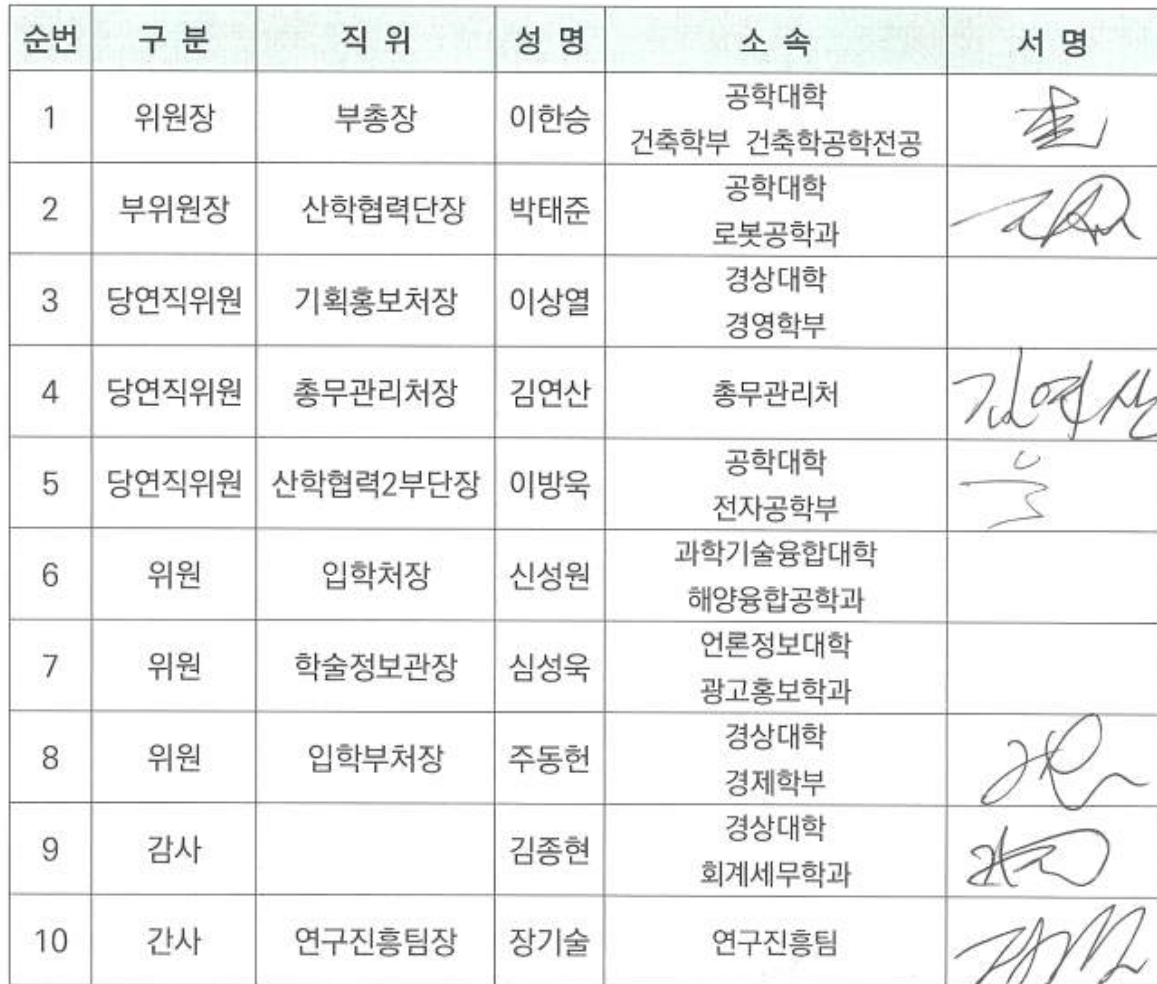 순번 구 분 직 위 성 명 소 속 서 명
1 위원장 부총장 이한승 공학대학
건축학부 건축학공학전공
2 부위원장 산학협력단장 박태준 공학대학
로봇공학과
3 당연직위원 기획홍보처장 이상열 경상대학
경영학부
4 당연직위원 총무관리처장 김연산 총무관리처 김연산
5 당연직위원 산학협력2부단장 이방욱 공학대학
전자공학부
6 위원 입학처장 신성원 과학기술융합대학
해양융합공학과
7 위원 학술정보관장 심성욱 언론정보대학
광고홍보학과
8 위원 입학부처장 주동헌 경상대학
경제학부
9 감사 김종현 경상대학
회계세무학과
10 간사 연구진흥팀장 장기술 연구진흥팀